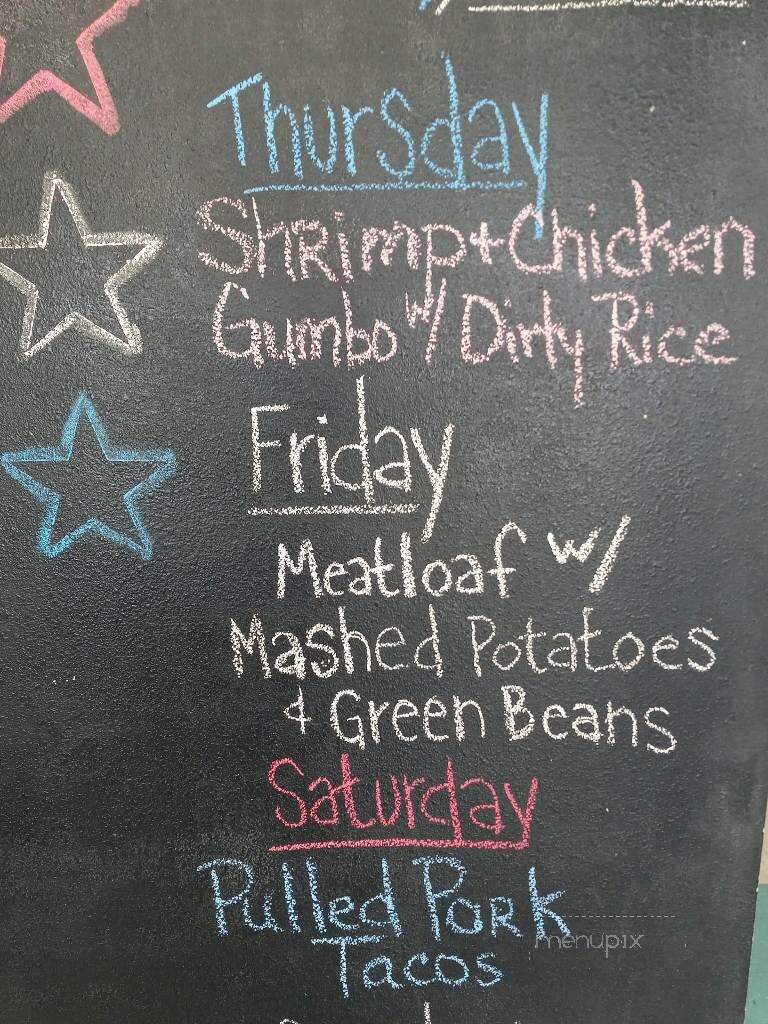 Thursday
Shrimp + Chicken
Gumbo w/ Dirty Rice
Friday
Meatloaf w/
Mashed Potatoes
& Green Beans
Saturday
Pulled Pork
Tacos
menupix